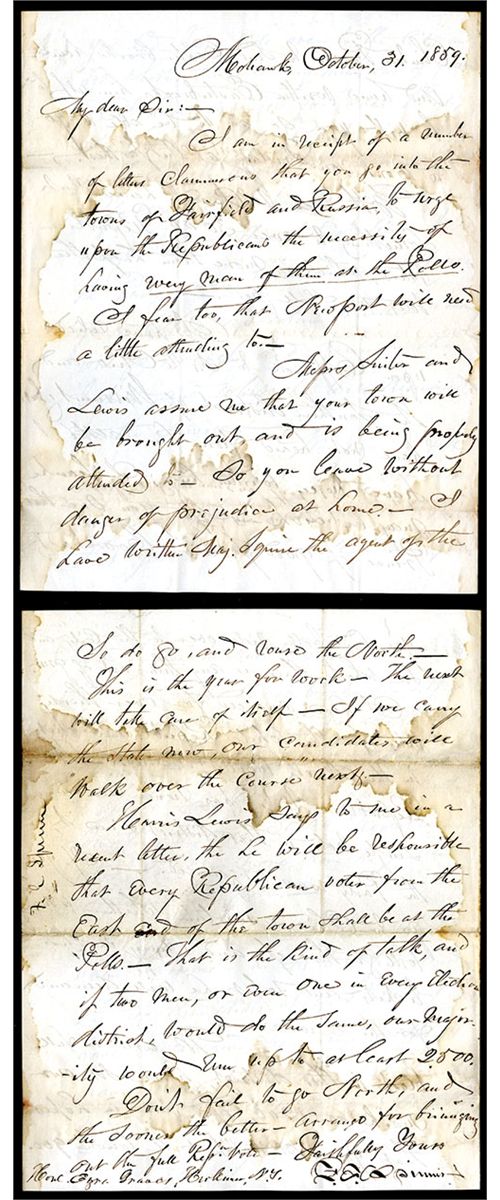 Mohawk, October, 31. 1859.
My dear Sir:—
I am in receipt of a number
of letters Clamorous that you go into the
towns of Fairfield and Russia, to urge
upon the Republicans the necessity of
having every man of them at the Polls.
I fear too, that Newport will need
a little attending to.—
Messrs Suiter and
Lewis assure me that your town will
be brought out, and is being properly
attended to— So you leave without
danger of prejudice at home— I
have written Maj. Squire the agent of the
So do go, and rouse the North.—
This is the year for work— The next
will take care of itself— If we carry
the State now, our candidates will
walk over the Course next.—
Harris Lewis says to me in a
recent letter, the he will be responsible
that every Republican voter from the
East end of the town shall be at the
Polls.— That is the kind of talk, and
if two men, or even one in every Election
district, would do the same, our major-
-ity would run up to at least 2500.
Don't fail to go North, and
the sooner the better— arrange for bringing
out the full Rep. vote— Faithfully Yours
F E Spinner
Hon. Ezra Graves, Herkimer, N.Y.
F. E. Spinner